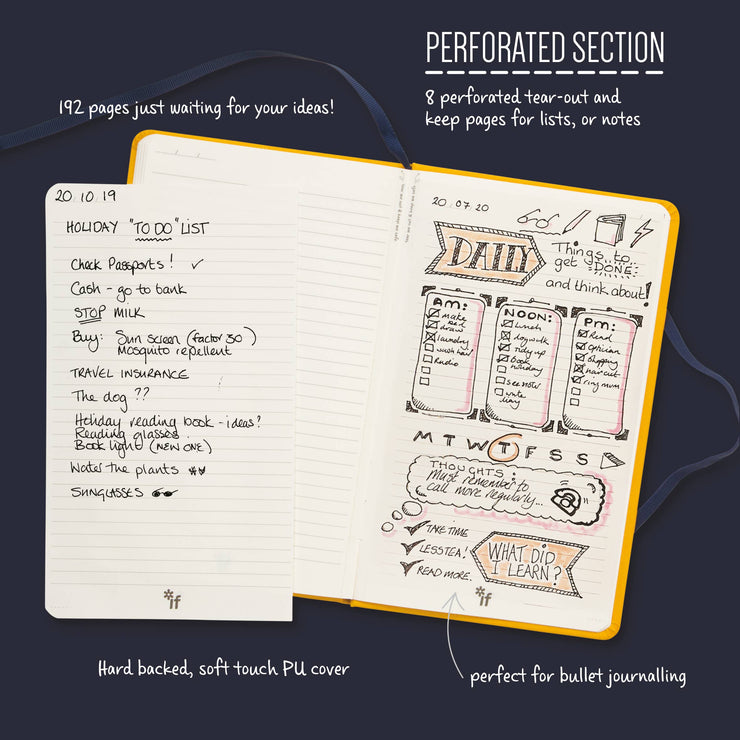 PERFORATED SECTION
8 perforated tear-out and
keep pages for lists, or notes
192 pages just waiting for your ideas!
20.10.19
HOLIDAY "TO DO" LIST
Check Passports! ✓
Cash - go to bank
STOP MILK
Buy: Sun screen (factor 30)
Mosquito repellent
TRAVEL INSURANCE
The dog ??
Holiday reading book - ideas?
Reading glasses.
Book light (NEW ONE)
Water the plants
SUNGLASSES
*if
20.07.20
DAILY
Things to
get DONE
and think about!
AM:
make
bed
draw
laundry
wash hair
Radio
NOON:
Lunch
dog walk
Tidy up
Book
holiday
see note
write
diary
PM:
Read
Optician
Shopping
hair cut
ring mum
M T W T F S S
THOUGHTS:
Must remember to
call more regularly...
TAKE TIME
LESS TEA!
READ MORE.
WHAT DID
I LEARN?
*if
Hard backed, soft touch PU cover
perfect for bullet journalling